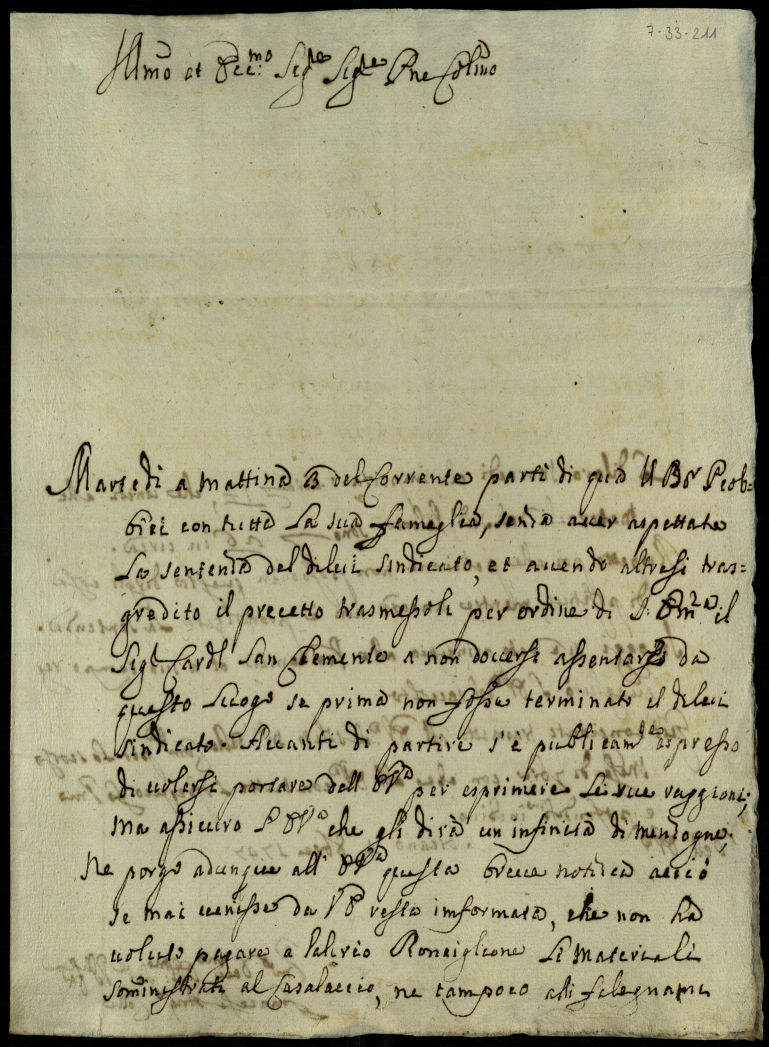 7-33-211
Illmo et Eccmo Sigre Sigre Pne Colmo
Martedi a mattina 3 del Corrente parti di qua Il Bor Peob=
brei con tutta La sua fameglia, senza aver aspettate
La sentenza del dilui sindicato, et avendo altresi tras=
gredito il precetto trasmessoli per ordine di S. Emza il
Sigr Cardl San Clemente a non doversi assentarsi da
questo Luogo se prima non fosse terminato il dilui
sindicato. Avanti di partire s'è publicamte espresso
di volersi portare dall'EVa per esprimere Le sue raggioni;
ma assicuro L'EVa che gli dirà un infinità di menzogne;
Ne porgo adunque all'EVa questa breve notizia acciò
se mai venisse da VE resta imformata, che non hà
voluto pagare a Valerio Ronciglione Li materiali
sominestrati al Casalaccio, ne tampoco alli falegnami